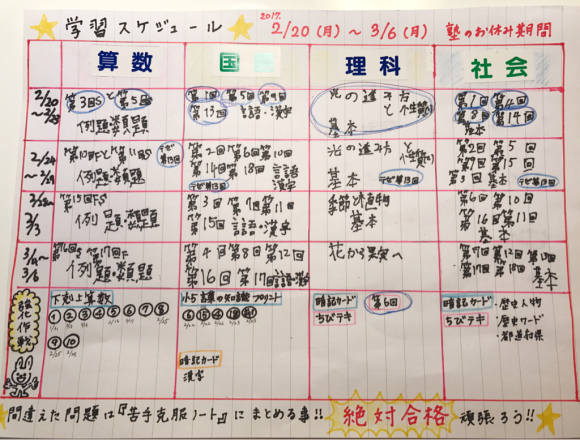 学習スケジュール 2017. 2/20(月)~3/6(月) 塾のお休み期間
算数 国 理科 社会
2/20
第3回S と 第5回
例題類題
第1回 第5回 第9回
第13回 言語・漢字
光の進み方
基本
第1回 第4回
第8回 第14回
基本
2/24
例題類題
第2回 第6回 第10回
第14回 第18回 言語
漢字
光の進み方
基本
第2回 第5回
第15回
第3回 基本
3/3
例題・類題
第3回 第7回 第11回
第15回 言語・漢字
季節と植物
基本
第6回 第10回
第16回 第11回
基本
3/6
例題・類題
第4回 第8回 第12回
第16回 第17回 言語・漢字
花から実へ
第7回 第12回
第17回 第18回
基本
強化作戦
下剋上算数
① ② ③ ④ ⑤ ⑥ ⑦ ⑧
⑨ ⑩
言葉の知識プリント
暗記カード
漢字
暗記カード 第6回
ちびテキ
暗記カード ・歴史人物
ちびテキ ・歴史ワード
・都道府県
間違えた問題は『苦手克服ノート』にまとめる事!! 絶対合格 頑張ろう!!